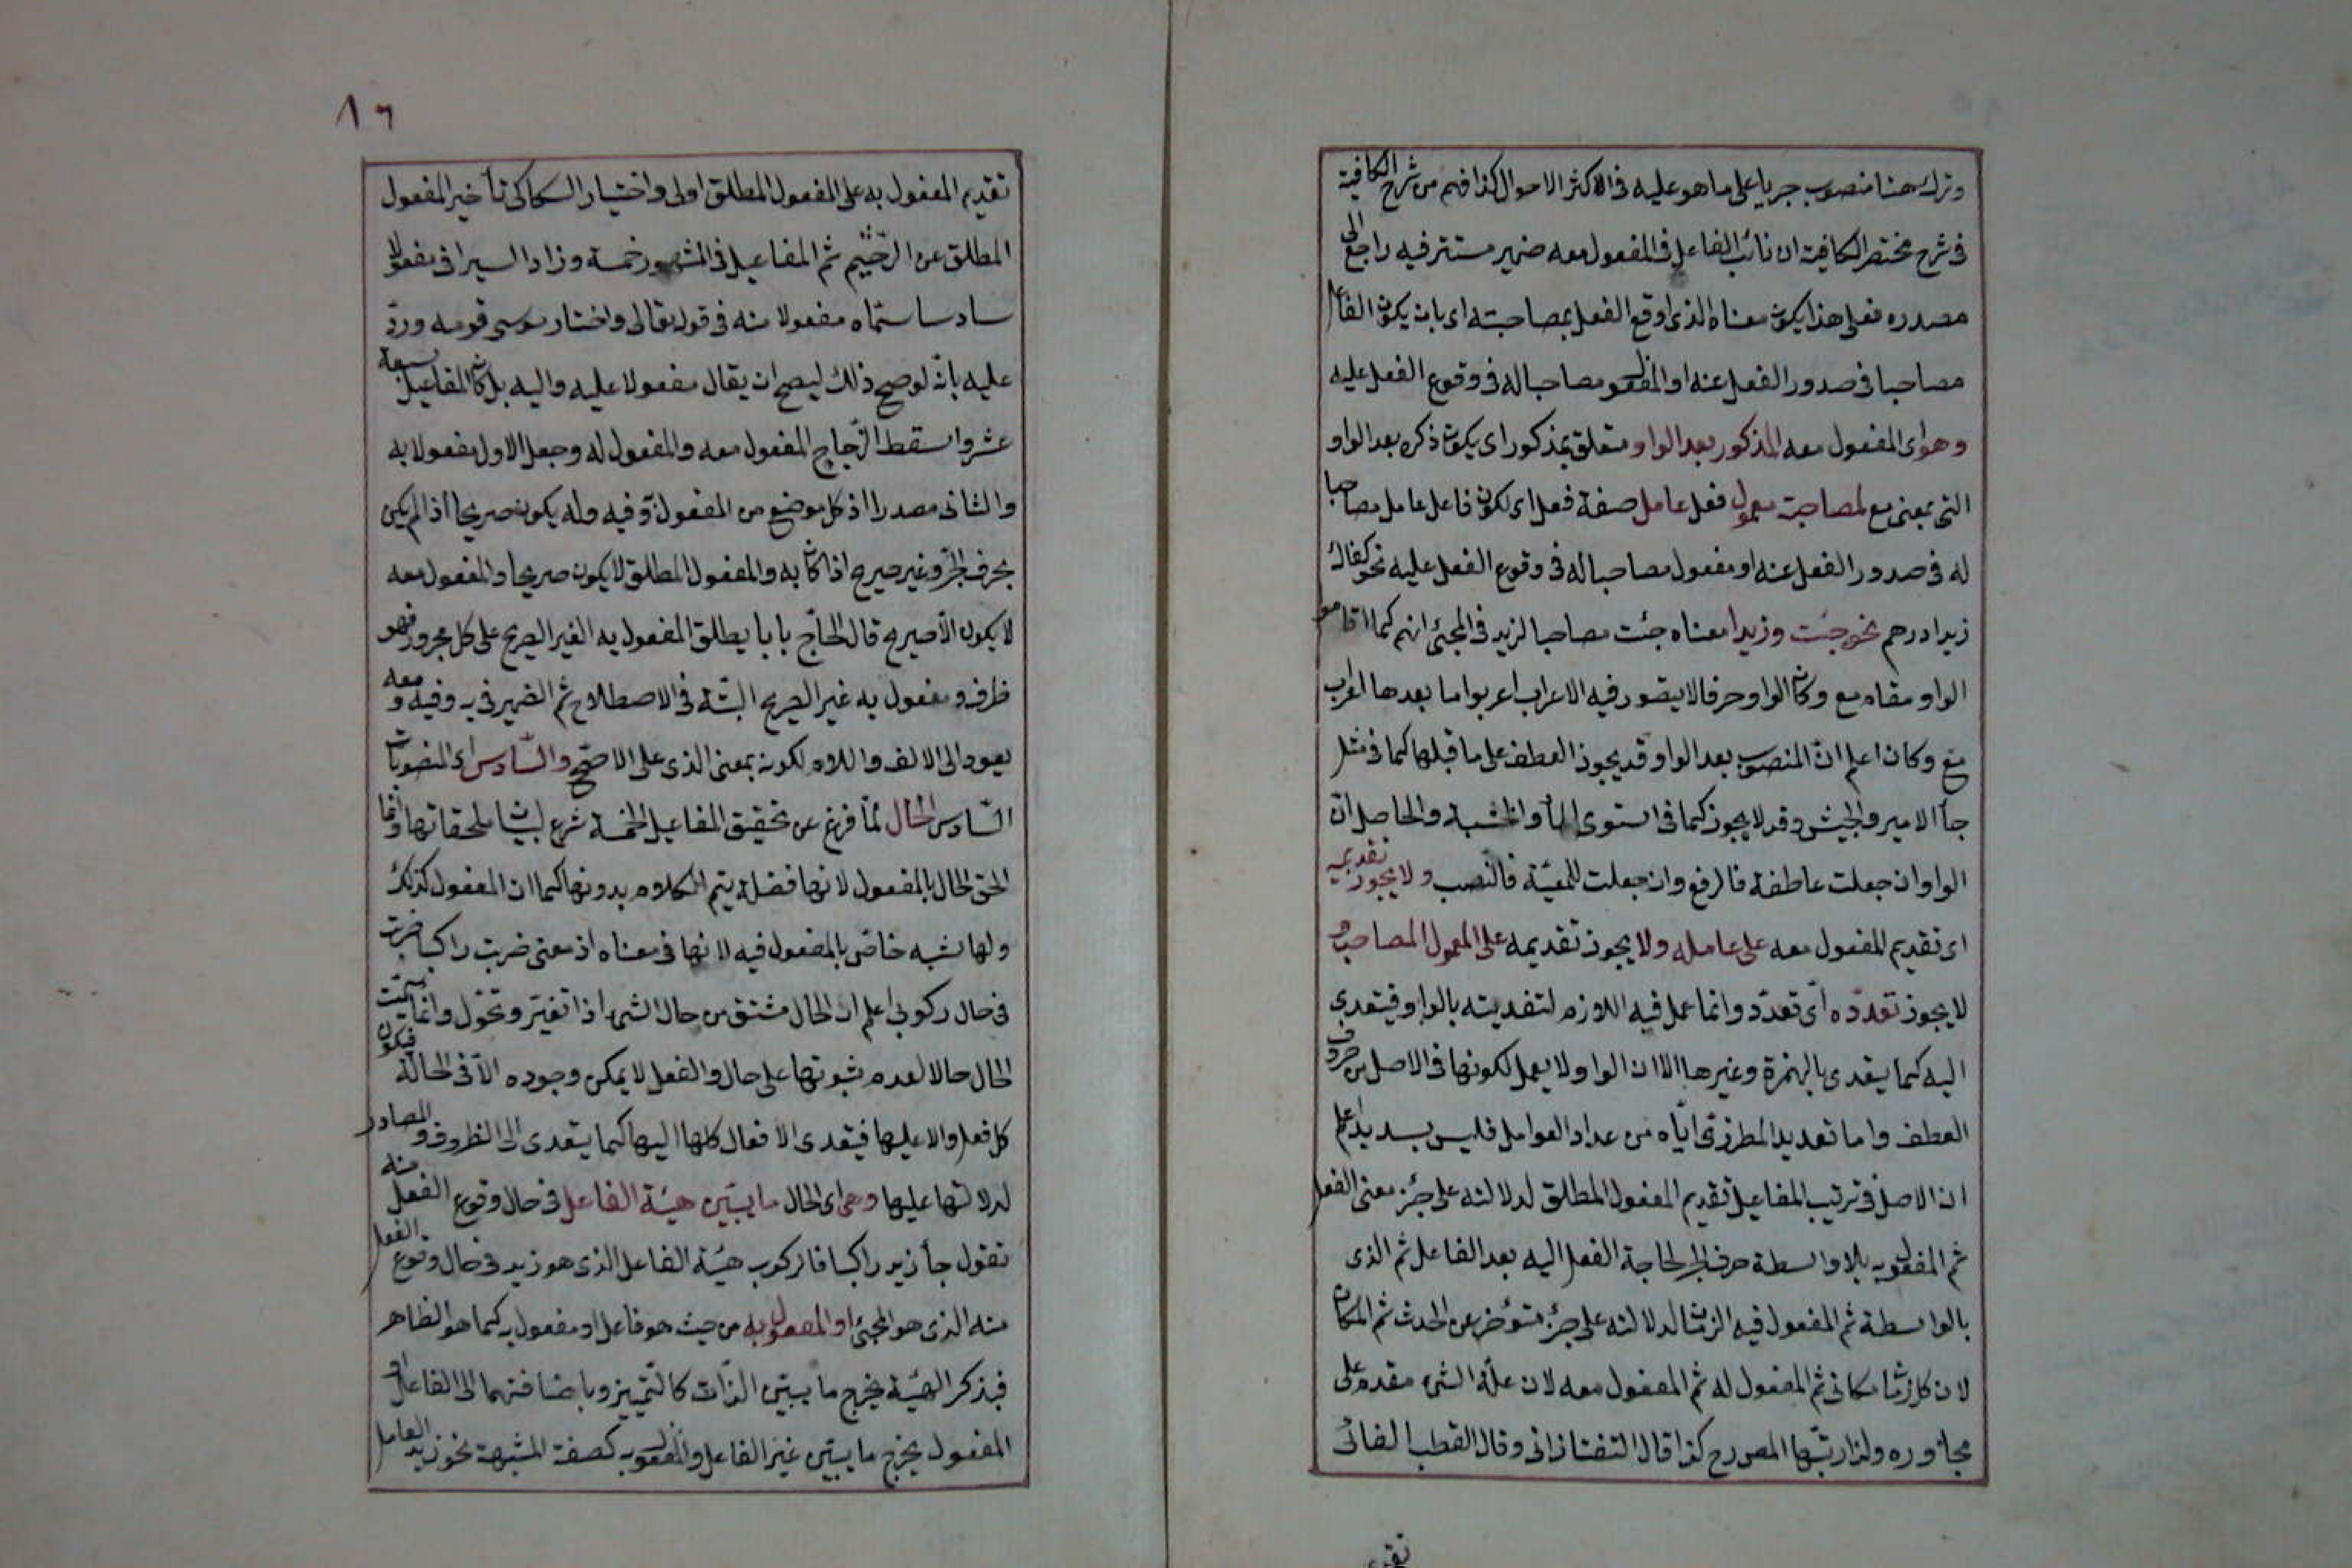 وترك هنا منصوب جريا على ما هو عليه فى الاكثر الاحوال كذا فهم من شرح الكافية
فى شرح مختصر الكافية ان نائب الفاعل فى المفعول معه ضمير مستتر فيه راجع الى
مصدره فعلى هذا يكون معناه الذى اوقع الفعل بمصاحبته اى بان يكون الفاعل
مصاحبا فى صدور الفعل عنه او المفعول مصاحبا له فى وقوع الفعل عليه
وهو اى المفعول معه المذكور بعد الواو متعلق بمذكور اى يكون ذكره بعد الواو
التى بمعنى مع لمصاحبة معمول فعل عامل صفة فعل اى لكون فاعل عامل مصاحبا
له فى صدور الفعل عنه او مفعول مصاحبا له فى وقوع الفعل عليه نحو كفاك
زيدا درهم نحو جئت وزيدا معناه جئت مصاحبا لزيد فى المجئ انهم كما اقاموا
الواو مقام مع وكان الواو حرفا لا يتصور فيه الاعراب اعربوا ما بعدها اعراب
مع وكان اعلم ان المنصوب بعد الواو قد يجوز العطف على ما قبلها كما فى مثل
جأ الامير والجيش وقد لا يجوز كما فى استوى المأ والخشبة والحاصل ان
الواو ان جعلت عاطفة فالرفع وان جعلت للمعيّة فالنصب ولا يجوز تقديمه
اى تقديم المفعول معه على عامله ولا يجوز تقديمه على المعمول المصاحب و
لا يجوز تعدّده اى تعدّد وانما عمل فيه اللازم لتعديته بالواو فيتعدى
اليه كما يتعدى بالهمزة وغيرها الا ان الواو لا يعمل لكونها فى الاصل من حروف
العطف واما تعديد المطرزى ايّاه من عداد العوامل فليس بسديد اعلم
ان الاصل فى ترتيب المفاعيل تقديم المفعول المطلق لدلالته على جزء معنى الفعل
ثم المفعول به بلا واسطة حرف الجر لحاجة الفعل اليه بعد الفاعل ثم الذى
بالواسطة ثم المفعول فيه الزمان لدلالته على جزء متؤخر عن الحدث ثم المكان
لان كل زمان مكانى ثم المفعول له ثم المفعول معه لان علّة الشئ مقدم على
مجاوره ولذا رتبها المصر رح كذا قال التفتازانى وقال القطب الفائى
تقديم
٨٦
تقديم المفعول به على المفعول المطلق اولى واختيار السكاكى تأخير المفعول
المطلق عن ثم المفاعيل فى المشهور خمسة وزاد السيرافى مفعولا
سادسا سمّاه مفعولا منه فى قوله تعالى واختار موسى قومه وردّ
عليه بانّه لو صح ذلك ليصح ان يقال مفعولا عليه واليه بل كان المفاعيل سبعة
عشر واسقط الزّجاج المفعول معه والمفعول له وجعل الاول مفعولا به
والثانى مصدرا اذ كل موضع من المفعول وفيه وله يكون صريحا اذا لم يكن
بحرف الجرّ وغير صريح اذا كان به والمفعول المطلق لا يكون صريحا والمفعول معه
لا يكون الا صريح قال الحاجّ بابا يطلق المفعول به الغير الصريح على كل مجرور فهو
ظرف ومفعول به غير الصريح البتّة فى الاصطلاح ثم الضمير فى به وفيه و معه
يعود الى الالف واللام لكونه بمعنى الذى على الاصحّ والسّادس اى المنصوبات
السّادس الحال لمّا فرغ عن تحقيق المفاعيل الخمسة شرع لبيان ملحقاتها وانما
الحق الحال بالمفعول لانها فضلة يتم الكلام بدونها كما ان المفعول كذلك
ولها شبه خاصّ بالمفعول فيه لانها فى معناه اذ معنى ضربت راكبا ضربت
فى حال ركوبى اعلم ان الحال مشتق من حال الشئ اذا تغيّر وتحوّل وانما سمّيت
الحال حالا لعدم ثبوتها على حال والفعل لا يمكن وجوده الّا فى الحالة فيكون
كل فعل والا عليها فيتعدى الافعال كلها اليها كما يتعدى الى الظروف و المصادر
لدلالتها عليها وهى اى الحال ما يبيّن هيئة الفاعل فى حال وقوع الفعل منه
تقول جأ زيد راكبا فالركوب هيئة الفاعل الذى هو زيد فى حال وقوع الفعل
منه الذى هو المجئ او المفعول به من حيث هو فاعل او مفعول به كما هو الظاهر
فبذكر الهيئة يخرج ما يبيّن الذّات كالتّمييز وباضافتهما الى الفاعل او
المفعول يخرج ما يبيّن غير الفاعل والمفعول به كصفة المشبهة نحو زيد العامل